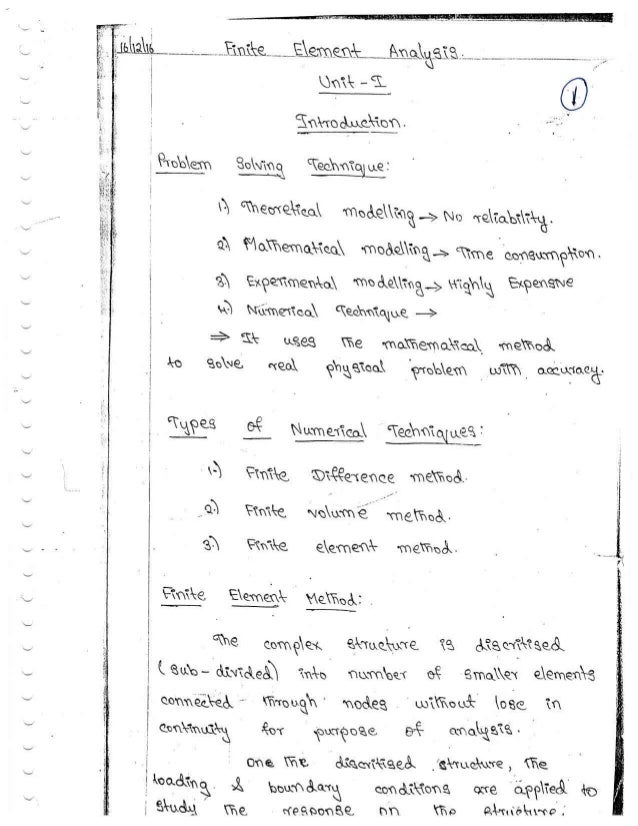 16/12/16 Finite Element Analysis.
Unit - I
1
Introduction.
Problem Solving Technique:
1.) Theoretical modelling → No reliability.
2) Mathematical modelling → Time consumption.
3) Experimental modelling → Highly Expensive
4.) Numerical Technique →
⇒ It uses the mathematical method
to solve real physical problem with accuracy.
Types of Numerical Techniques:
1.) Finite Difference method.
2.) Finite volume method.
3.) Finite element method.
Finite Element Method:
The complex structure is discritised
(sub-divided) into number of smaller elements
connected through nodes without lose in
continuity for purpose of analysis.
One the discritised structure, the
loading & boundary conditions are applied to
study the response on the structure.